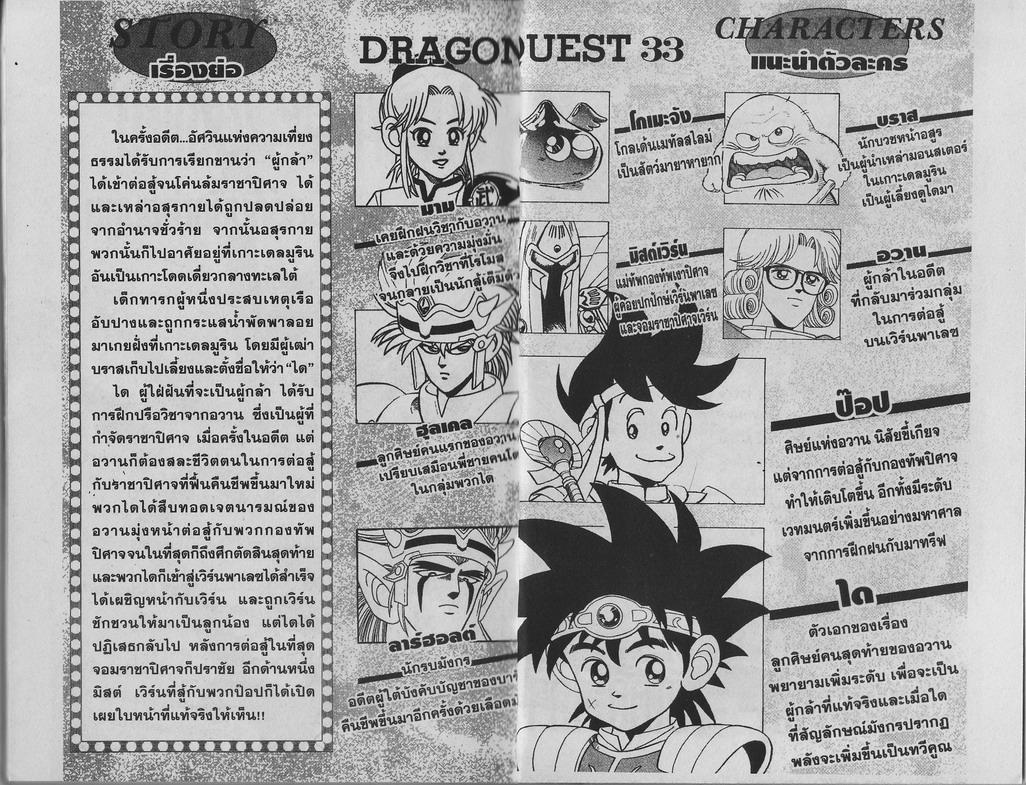 STORY
เรื่องย่อ
ในครั้งอดีต...อัศวินแห่งความเที่ยง
ธรรมได้รับการเรียกขานว่า "ผู้กล้า"
ได้เข้าต่อสู้จนโค่นล้มราชาปิศาจ ได้
และเหล่าอสุรกายได้ถูกปลดปล่อย
จากอำนาจชั่วร้าย จากนั้นอสุรกาย
พวกนั้นก็ไปอาศัยอยู่ที่เกาะเดลมูริน
อันเป็นเกาะโดดเดี่ยวกลางทะเลใต้
เด็กทารกผู้หนึ่งประสบเหตุเรือ
อับปางและถูกกระแสน้ำพัดพาลอย
มาเกยฝั่งที่เกาะเดลมูริน โดยมีผู้เฒ่า
บราสเก็บไปเลี้ยงและตั้งชื่อให้ว่า "ได"
ได ผู้ใฝ่ฝันที่จะเป็นผู้กล้า ได้รับ
การฝึกปรือวิชาจากอวาน ซึ่งเป็นผู้ที่
กำจัดราชาปิศาจ เมื่อครั้งในอดีต แต่
อวานก็ต้องสละชีวิตตนในการต่อสู้
กับราชาปิศาจที่ฟื้นคืนชีพขึ้นมาใหม่
พวกไดได้สืบทอดเจตนารมณ์ของ
อวานมุ่งหน้าต่อสู้กับพวกกองทัพ
ปิศาจจนในที่สุดก็ถึงศึกตัดสินสุดท้าย
และพวกไดก็เข้าสู่เวิร์นพาเลซได้สำเร็จ
ได้เผชิญหน้ากับเวิร์น และถูกเวิร์น
ชักชวนให้มาเป็นลูกน้อง แต่ไดได้
ปฏิเสธกลับไป หลังการต่อสู้ในที่สุด
จอมราชาปิศาจก็ปราชัย อีกด้านหนึ่ง
มิสต์ เวิร์นที่สู้กับพวกป๊อปก็ได้เปิด
เผยใบหน้าที่แท้จริงให้เห็น!!
DRAGON QUEST 33
CHARACTERS
แนะนำตัวละคร
武
มาม
เคยฝึกฝนวิชากับอวาน
และด้วยความมุ่งมั่น
จึงไปฝึกวิชาที่โรโมส
จนกลายเป็นนักสู้เต็มตัว
ฮุลเคล
ลูกศิษย์คนแรกของอวาน
เปรียบเสมือนพี่ชายคนโต
ในกลุ่มพวกได
ลาร์ฮอลต์
นักรบมังกร
อดีตผู้ใต้บังคับบัญชาของบารั
คืนชีพขึ้นมาอีกครั้งด้วยเลือดม
โกเมะจัง
โกลเด้นเมทัลสไลม์
เป็นสัตว์มายาหายาก
มิสต์เวิร์น
แม่ทัพกองทัพเงาปิศาจ
ผู้คอยปกปักษ์เวิร์นพาเลซ
และจอมราชาปิศาจเวิร์น
บราส
นักบวชหน้าอสูร
เป็นผู้นำเหล่ามอนสเตอร์
ในเกาะเดลมูริน
เป็นผู้เลี้ยงดูไดมา
อวาน
ผู้กล้าในอดีต
ที่กลับมาร่วมกลุ่ม
ในการต่อสู้
บนเวิร์นพาเลซ
ป๊อป
ศิษย์แห่งอวาน นิสัยขี้เกียจ
แต่จากการต่อสู้กับกองทัพปิศาจ
ทำให้เติบโตขึ้น อีกทั้งมีระดับ
เวทมนตร์เพิ่มขึ้นอย่างมหาศาล
จากการฝึกฝนกับมาทรีฟ
ได
ตัวเอกของเรื่อง
ลูกศิษย์คนสุดท้ายของอวาน
พยายามเพิ่มระดับ เพื่อจะเป็น
ผู้กล้าที่แท้จริงและเมื่อใด
ที่สัญลักษณ์มังกรปรากฏ
พลังจะเพิ่มขึ้นเป็นทวีคูณ